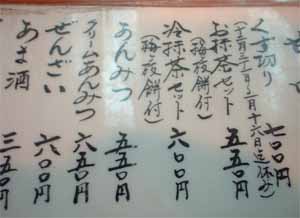 くず切り 七〇〇円
(十二月三十一日〜三月十六日迄休み)
お抹茶セット 五五〇円
(梅枝餅付)
冷抹茶セット 六〇〇円
(梅枝餅付)
あんみつ 五五〇円
クリームあんみつ 六五〇円
ぜんざい 六〇〇円
あま酒 三五〇円